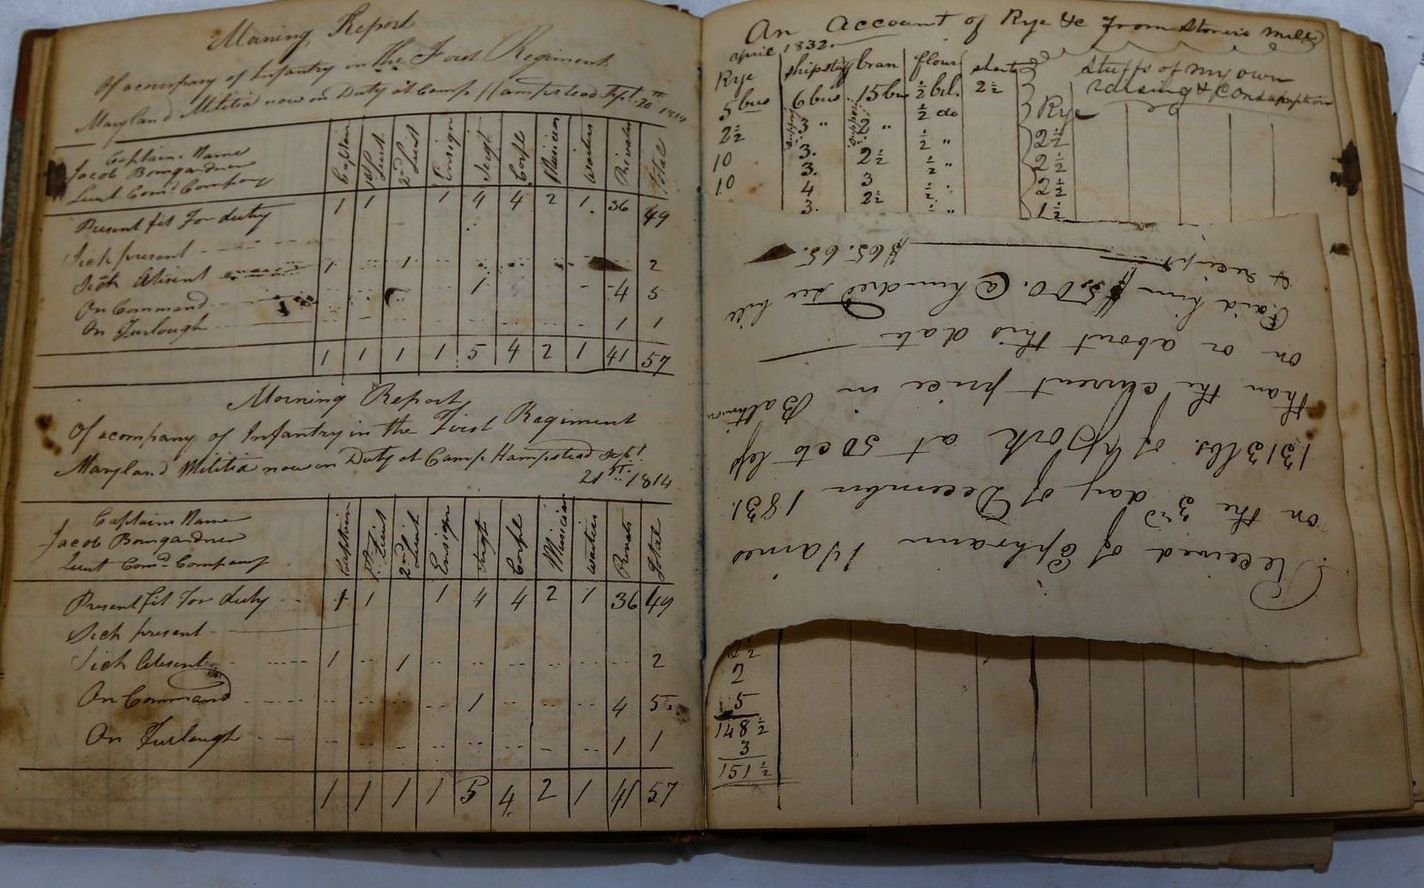 Morning Report
Of a company of Infantry in the First Regiment
Maryland Militia now on Duty at Camp Hampstead Sept. 20th 1814
Captains Name
Jacob Bomgardner
Lieut Comd Company
Captain 1st Lieut 2nd Lieut Ensign Sergt Corpl Musician waiters Privates Total
Present fit For duty 1 1 1 4 4 2 1 36 49
Sick present
Sick Absent 1 1 2
On Command 1 4 5
On Furlough 1 1
1 1 1 1 5 4 2 1 41 57
Morning Report
Of a company of Infantry in the First Regiment
Maryland Militia now on Duty at Camp Hampstead Sept.
21st 1814
Captains Name
Jacob Bomgardner
Lieut Comd Company
Captain 1st Lieut 2nd Lieut Ensign Sergt Corpl Musician waiters Total
Present fit For duty 1 1 1 4 4 2 1 36 49
Sick present
Sick Absent 1 1 2
On Command 1 4 5
On Furlough 1 1
1 1 1 1 5 4 2 1 41 57
An Account of Rye &c From Stoner's Mill
april 1832
Rye shipstuff bran flour shorts stuffs of my own
raising & Consumption
5 bus 6 bus 15 bus ½ bbl. 2½ Rye
2½ 3 " 2 " ½ do 2½
10 3. 2½ ½ " 2½
10 3. 3 ½ " 2½
4 2½ ½ 1½
3. ½ "
Received of Ephraim Haines
on the 3rd day of December 1831.
1313 lbs. of Pork at 50 cts less
than the current price in Baltimore
on or about this date
Paid him $5.00. @ hundred see his
receipt $65.65.
2
5
148½
3
151½